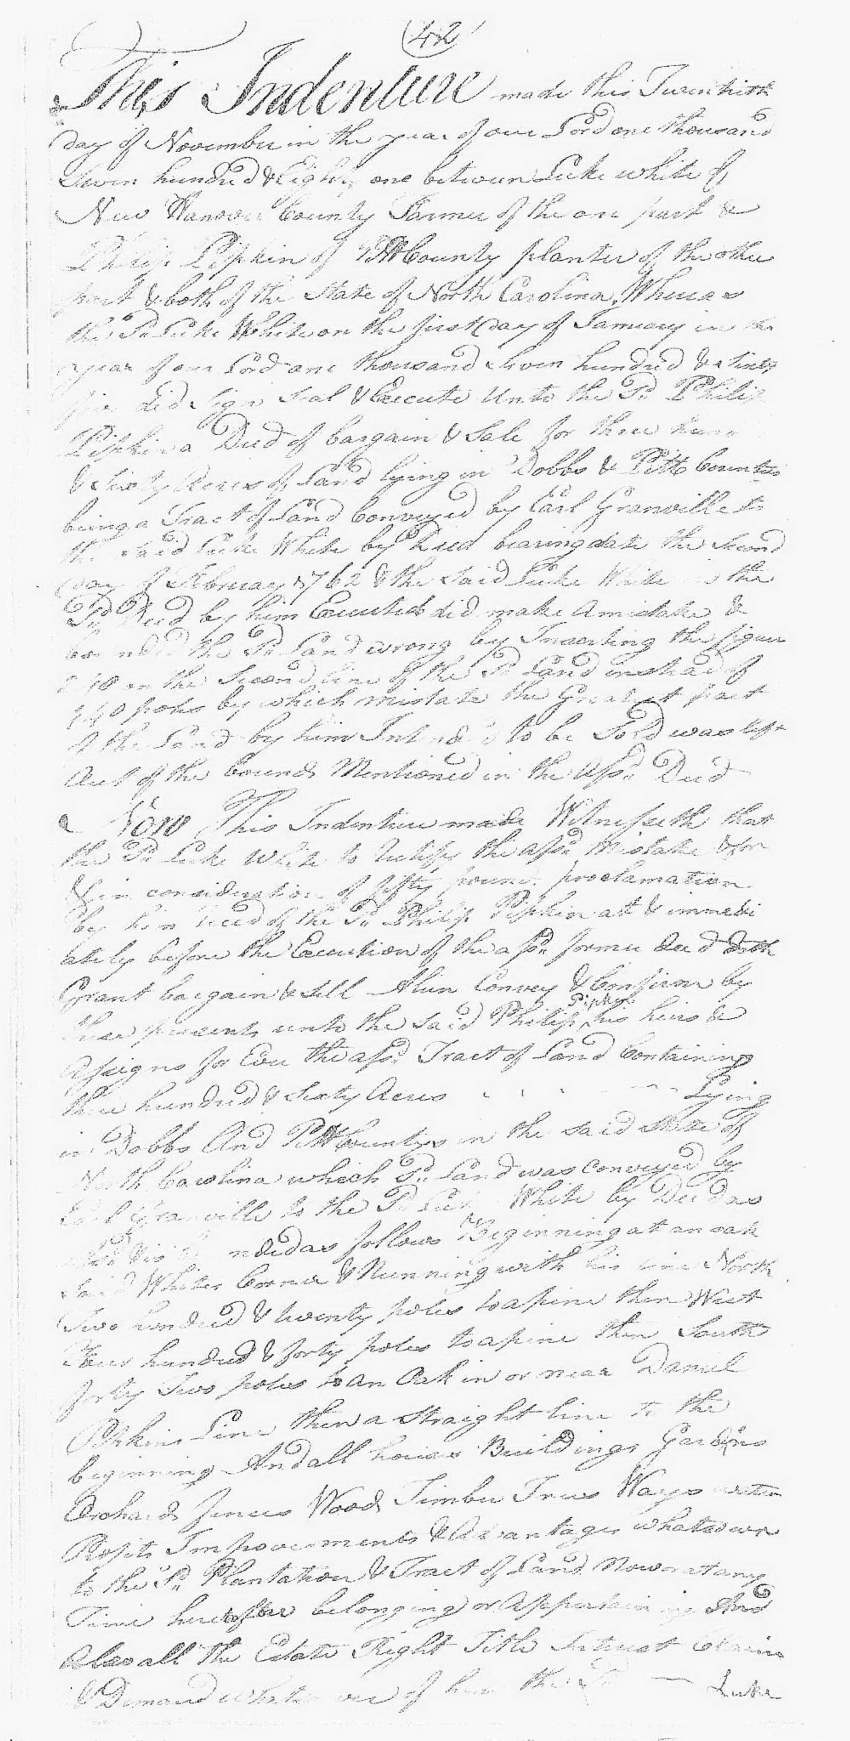 42
This Indenture made this Twentieth
day of November in the year of our Lord one thousand
Seven hundred & Eighty one between Luke White of
New Hanover County Farmer of the one part &
Philip Pipkin of Pitt County planter of the other
part & both of the State of North Carolina, Whereas
the Sd. Luke White on the first day of January in the
year of our Lord one thousand Seven hundred &
did Sign Seal & Execute Unto the Sd. Philip
Pipkin a Deed of bargain & Sale for three
& Sixty Acres of Land lying in Dobbs & Pitt Counties
being a Tract of Land Conveyed by Earl Granville to
the said Luke White by Deed bearing date the Second
day of February 1762 & the said Luke White in the
Sd. Deed by him Executed did make a mistake &
the Sd. Land wrong by Inserting the figure
in the Second line of the Sd. Land instead of
440 poles by which mistake the Greatest part
of the Land by him Intended to be Sold was left
Out of the bounds Mentioned in the Afsd. Deed
Now This Indenture made Witnesseth that
the Sd. Luke White to Rectify the afsd. Mistake & for
& in consideration of fifty pounds proclamation
by him reced of the Sd. Philip Pipkin att & immedi
ately before the Execution of the afsd. former deed doth
Grant bargain & sell Alien Convey & Confirm by
these presents unto the said Philip Pipkin his heirs &
Assigns for Ever the afsd. Tract of Land Containing
three hundred & Sixty Acres Lying
in Dobbs And Pitt Countys in the said State of
North Carolina which Sd. Land was conveyed by
Earl Granville to the Sd. Luke White by Deed as
as follows Beginning at an oak
Said Whites Corner & Running with his line North
Two hundred & twenty poles to a pine then West
Four hundred & forty poles to a pine then South
forty Two poles to an Oak in or near Daniel
Pipkins Line then a Straight line to the
beginning And all houses Buildings Gardens
Orchards fences Woods Timber Trees Ways water
Profits Improvements & Advantages whatsoever
to the Sd. Plantation & Tract of Land Now or at any
Time heretofore belonging or Appertaining And
Also all the Estate Right Title Interest Claim
& Demand whatsoever of him the Sd. Luke